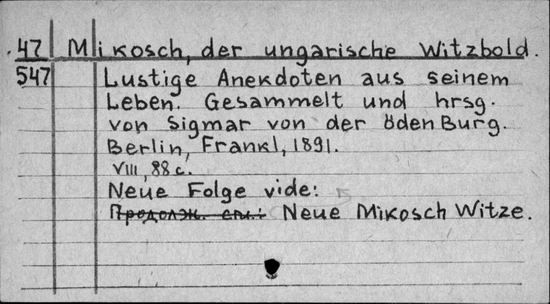 47 Mikosch, der ungarische Witzbold.
547 Lustige Anekdoten aus seinem
Leben. Gesammelt und hrsg.
von Sigmar von der Öden Burg.
Berlin, Frankl, 1891.
VIII, 88 c.
Neue Folge vide:
Продолж. см.: Neue Mikosch Witze.